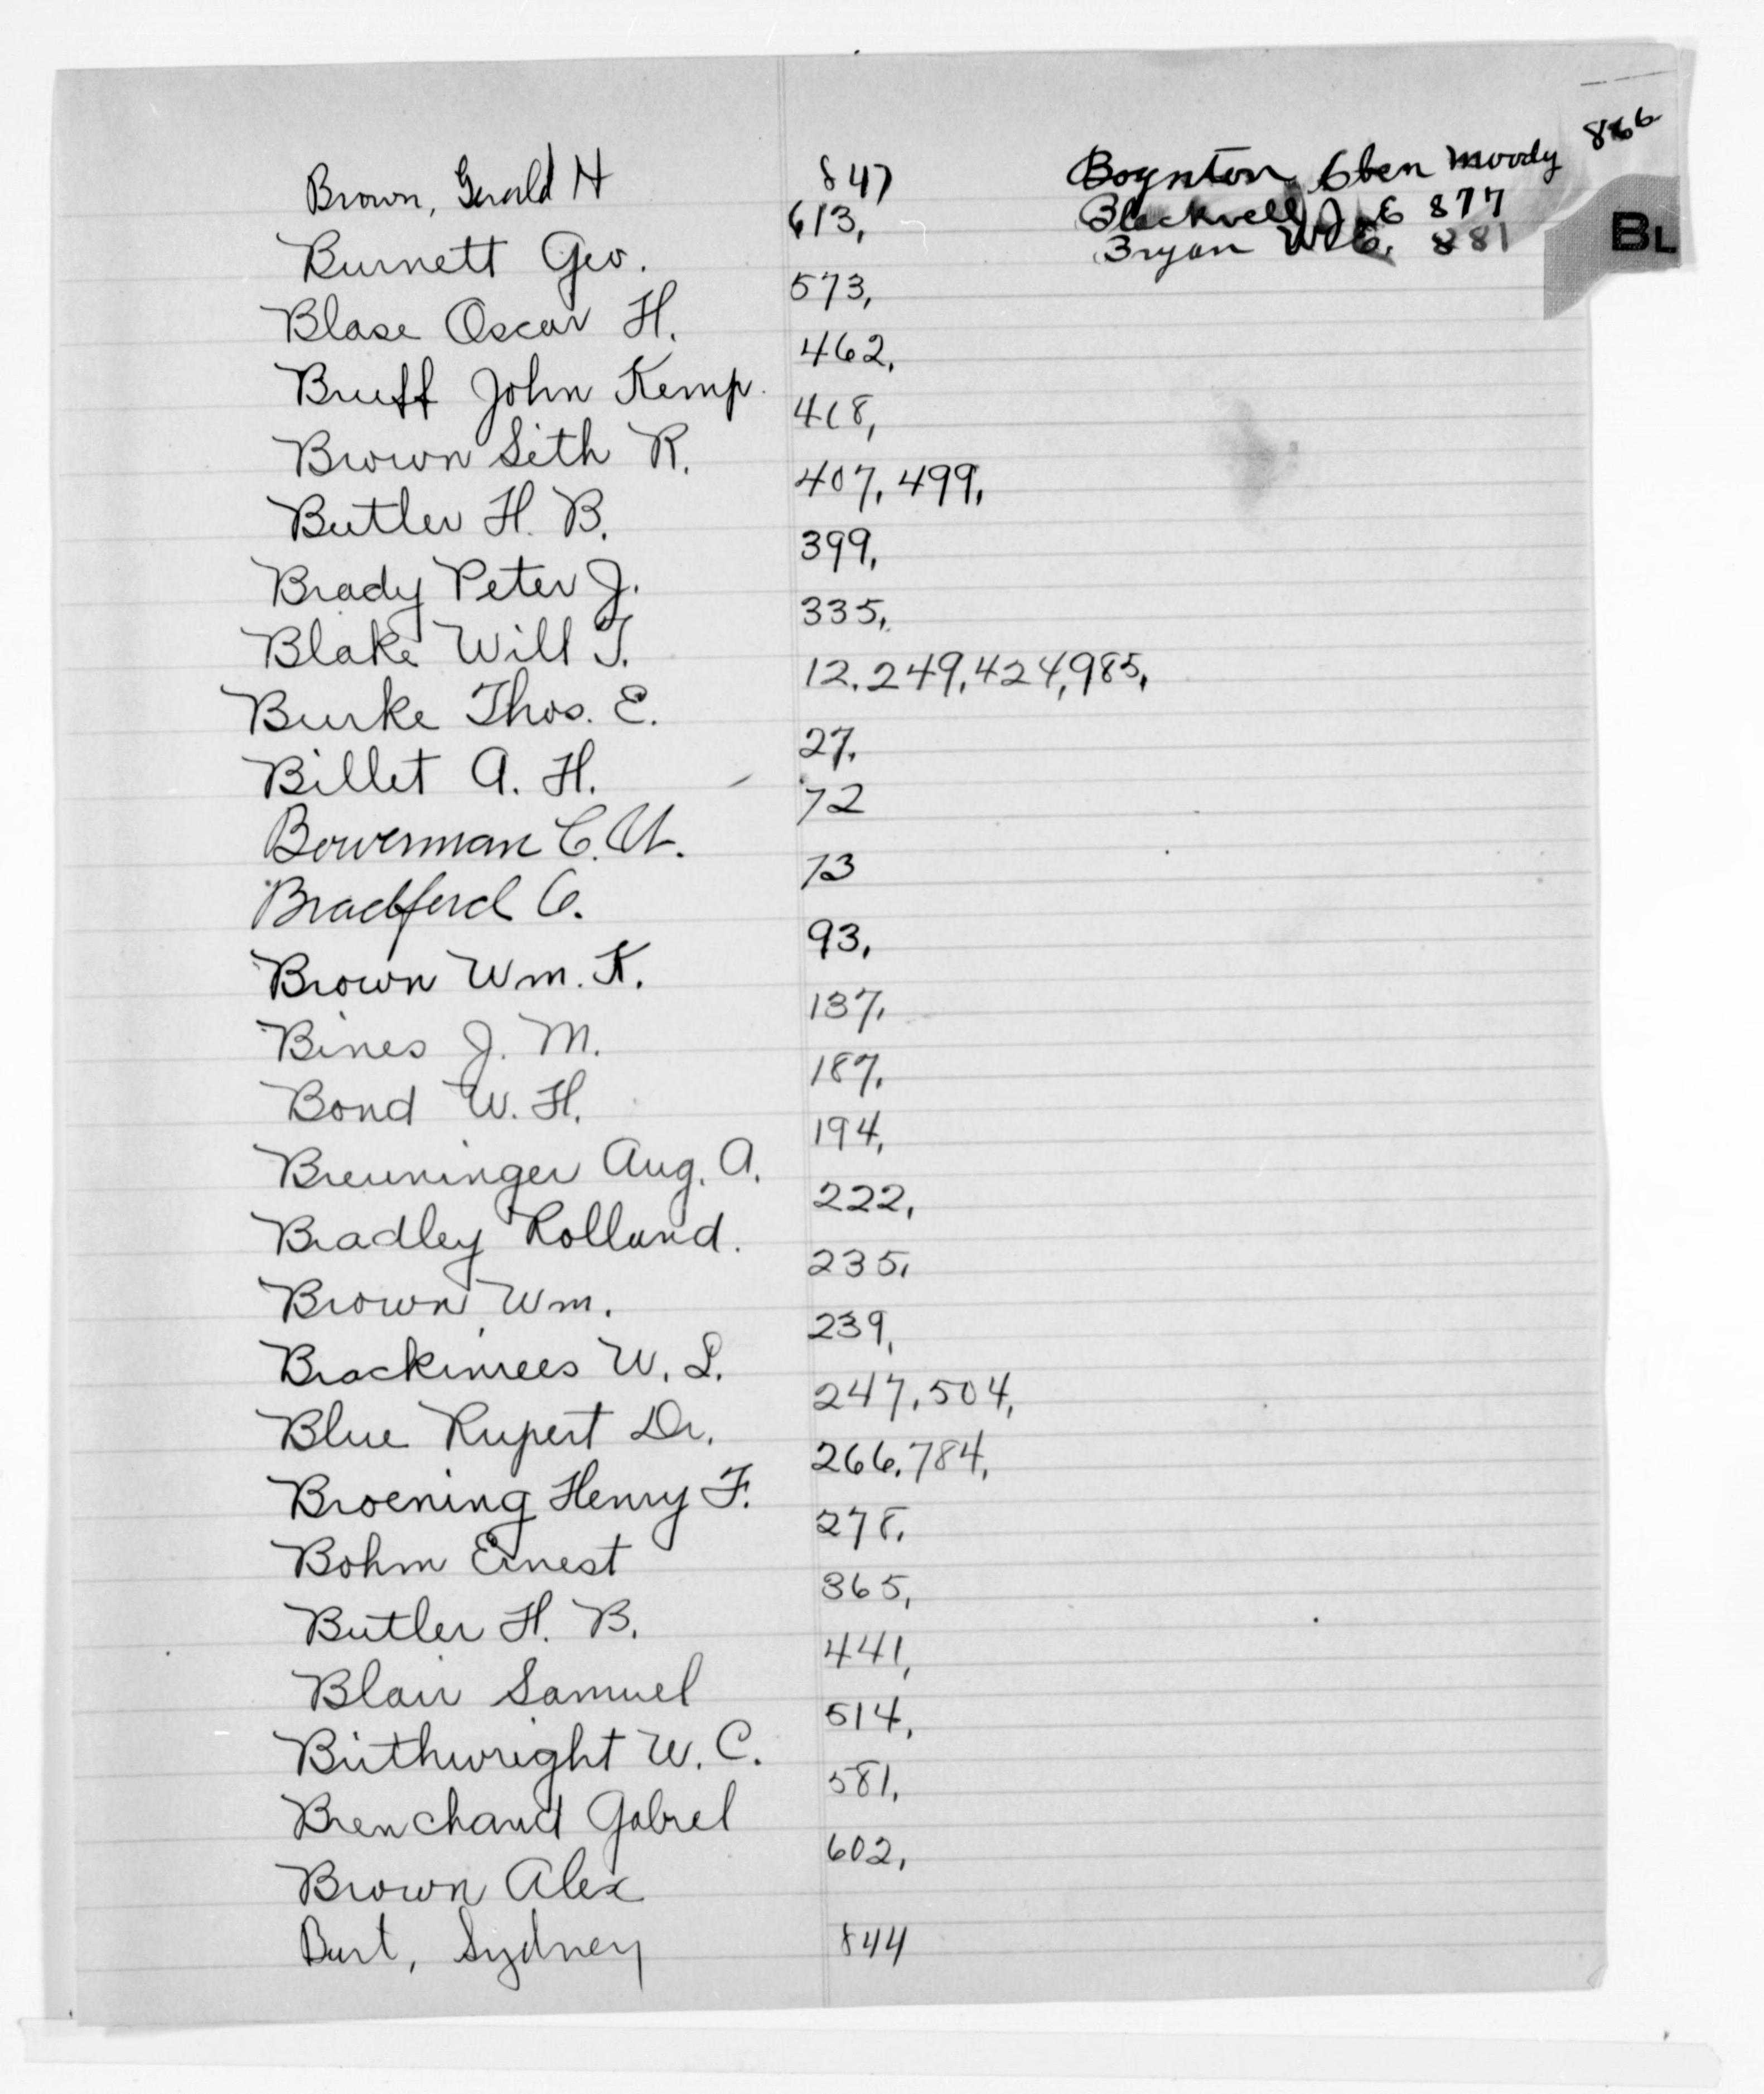 Brown, Gerald H 847 Boynton Eben Moody 866
Blackwell J E 877
Bryan W. E. 881
BL
Burnett Geo. 613,
Blase Oscar H. 573,
Bruff John Kemp. 462,
Brown Seth R. 418,
Butler H. B. 407, 499,
Brady Peter J. 399,
Blake Will T. 335,
Burke Thos. E. 12, 249, 424, 985,
Billet A. H. 27,
Bowerman C. W. 72
Bradford C. 73
Brown Wm. K. 93,
Bines J. M. 137,
Bond W. H. 187,
Breuninger Aug. A. 194,
Bradley Rolland. 222,
Brown Wm. 235,
W. L. 239,
Blue Rupert Dr. 247, 504,
Broening Henry F. 266, 784,
Bohm Ernest 278,
Butler H. B. 365,
Blair Samuel 441,
Birthwright W. C. 514,
Brenchaud Gabrel 581,
Brown Alex 602,
Burt, Sydney 844